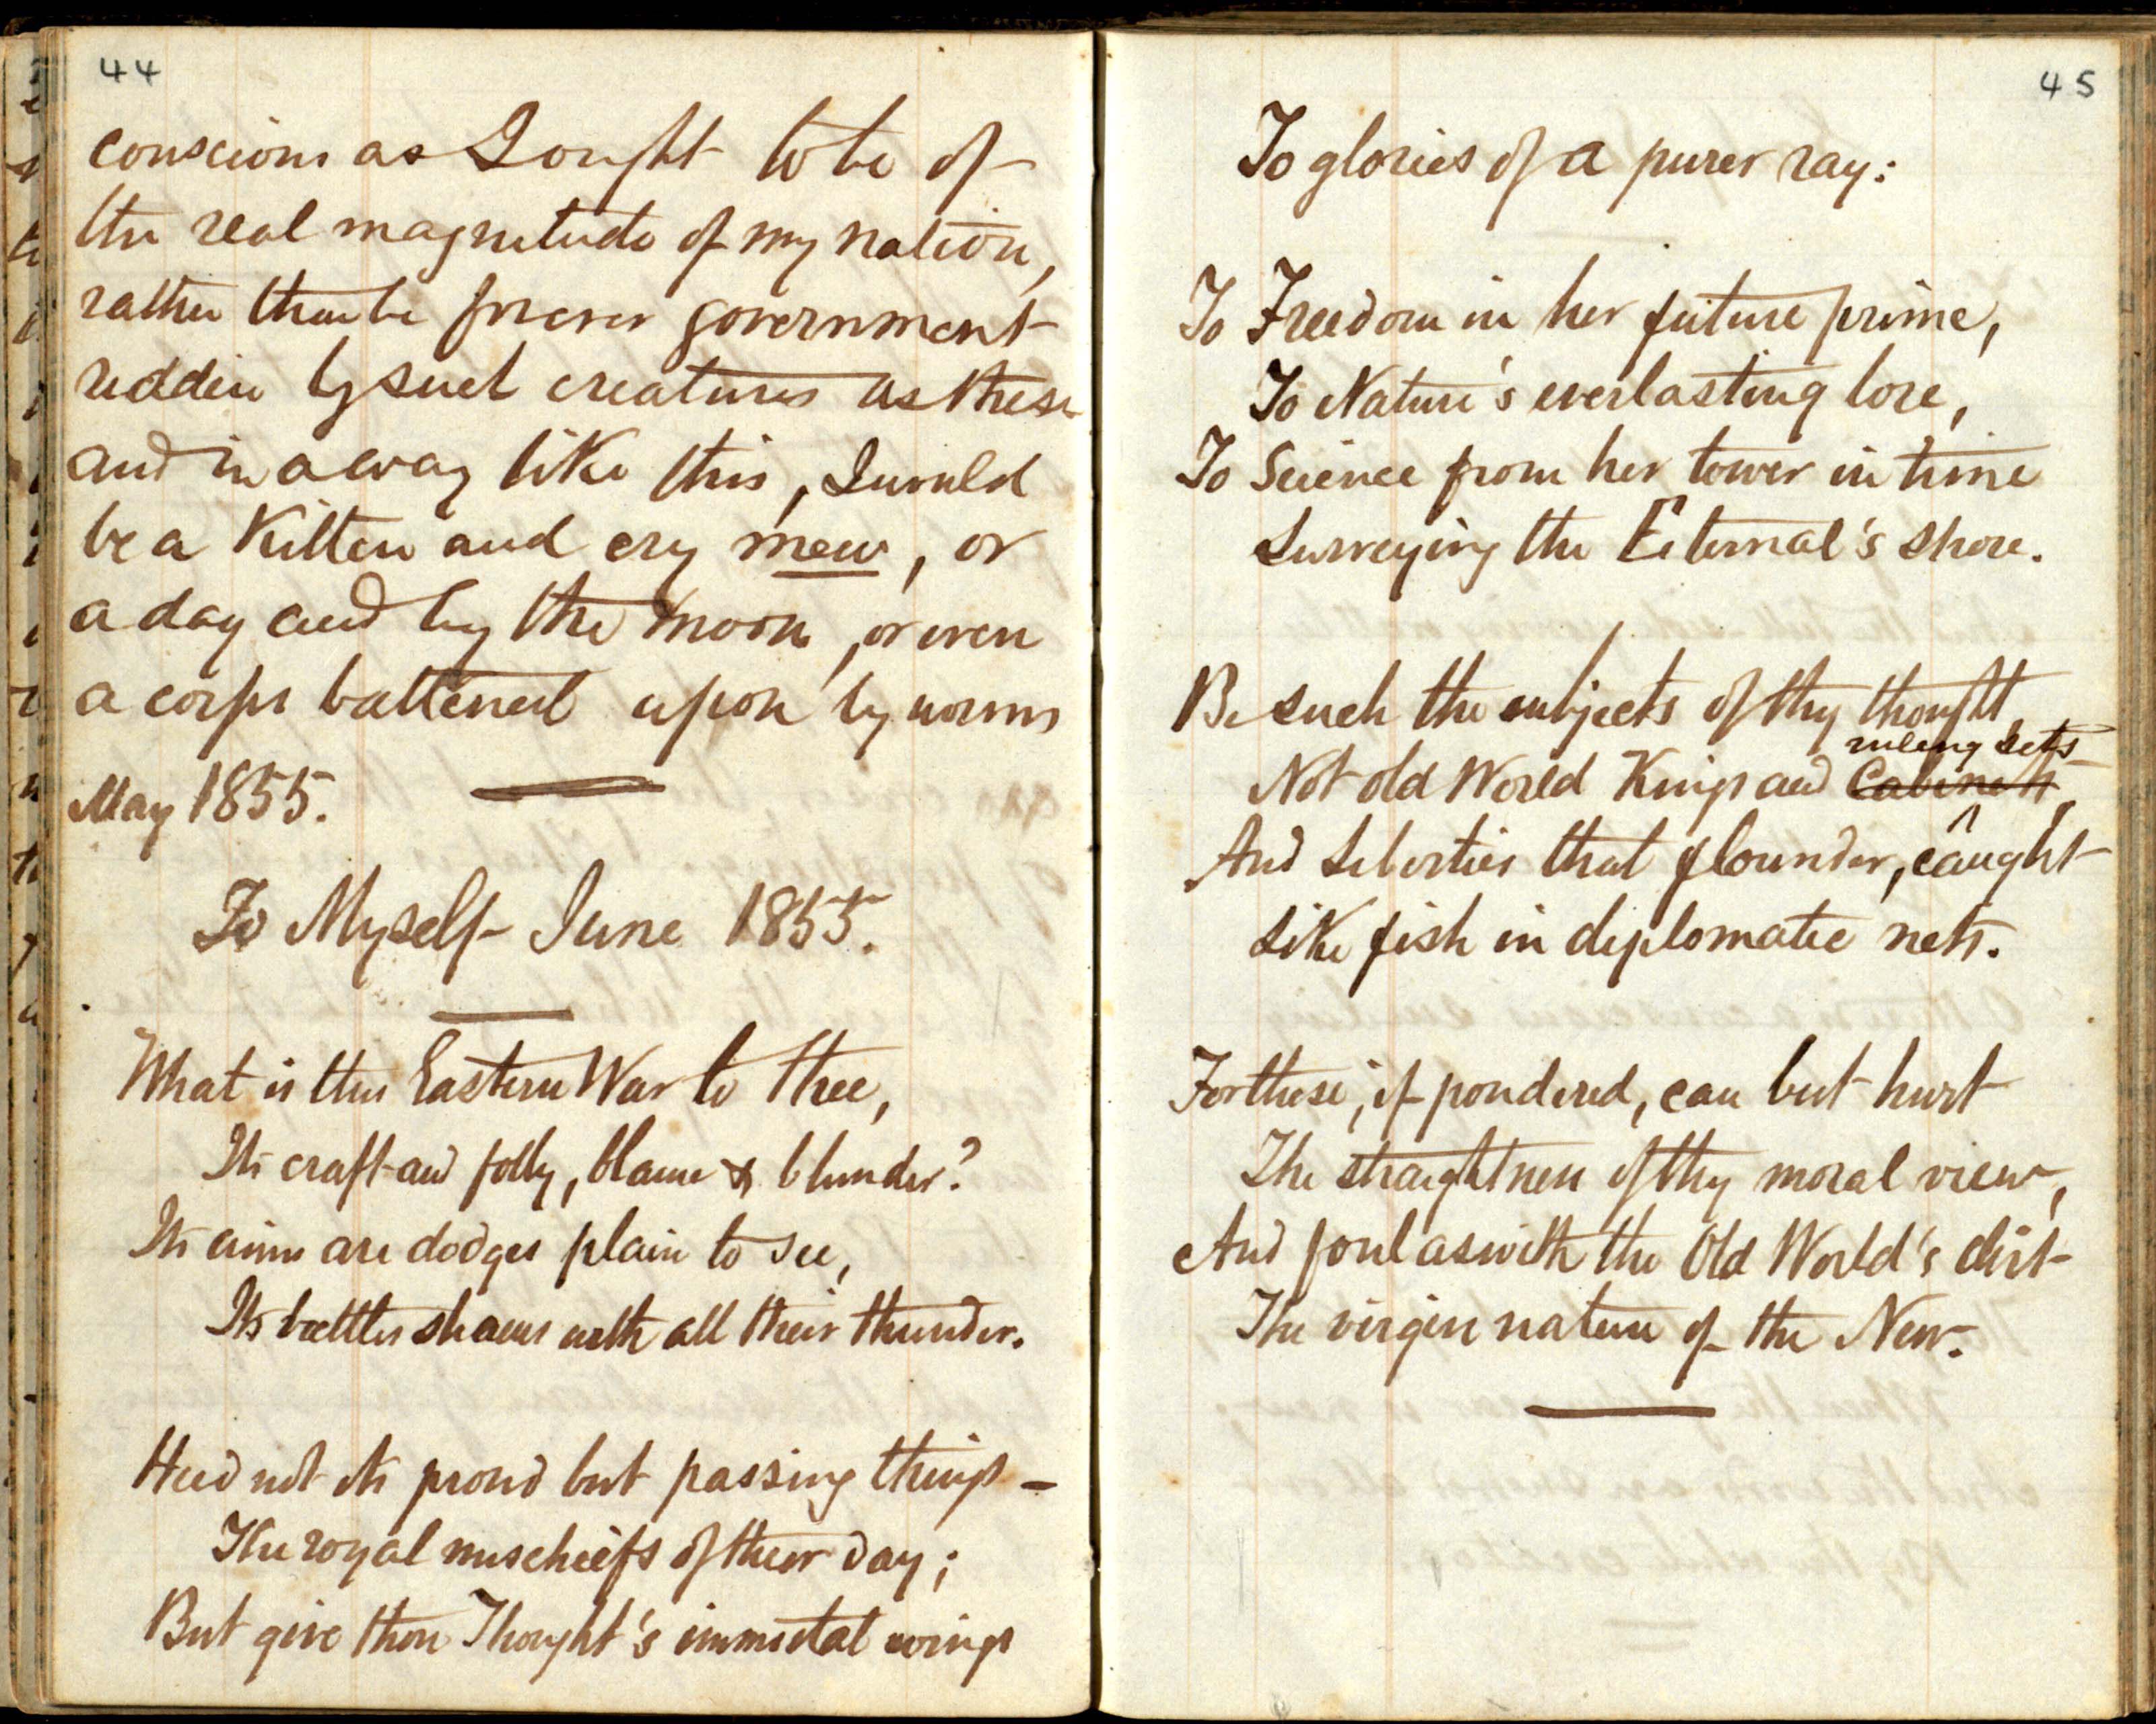 44
conscious as I ought to be of
the real magnitude of my nation,
rather than be forever government
ridden by such creatures as these
and in a way like this, I would
be a Kitten and cry mew, or
a dog and bay the moon, or even
a corps battened upon by worms
May 1855.
To Myself June 1855.
What is this Eastern War to thee,
Its craft and folly, blame & blunder?
Its aims are dodges plain to see,
Its battles shams with all their thunder.
Heed not its proud but passing things –
The royal mischiefs of their day;
But give thou Thought's immortal wings
45
To glories of a purer ray:
To Freedom in her future prime,
To Nature's everlasting lore,
To Science from her tower in time
Surveying the Eternal's shore.
Be such the subjects of thy thought,
ruling sets
Not old World Kings and Cabinets,
And Liberties that flounder, caught
Like fish in diplomatic nets.
For these, if pondered, can but hurt
The straightness of thy moral view,
And foul as with the Old World's dirt
The virgin nature of the New.